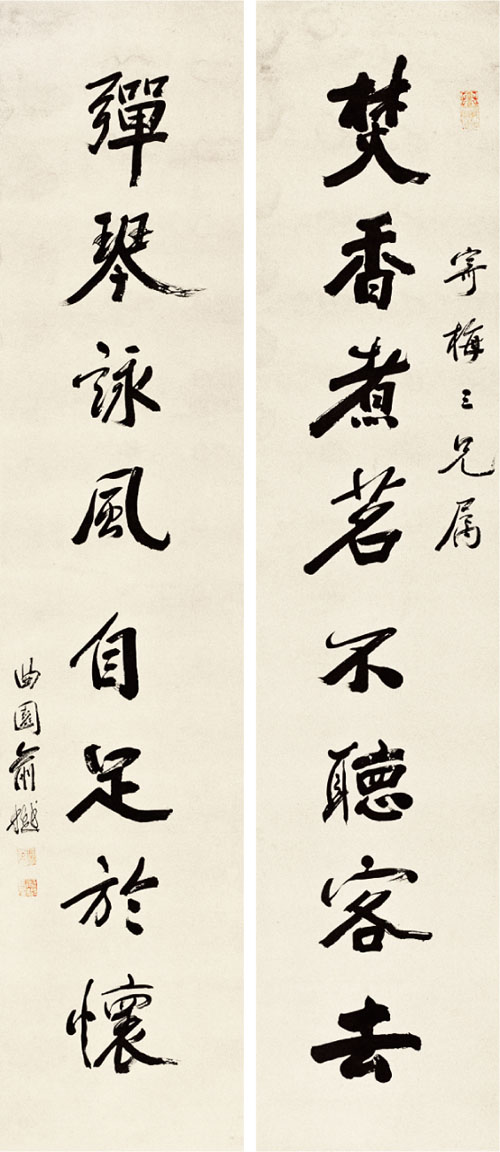 寄梅三兄属
焚香煮茗不聽客去
彈琴詠風自足於懷
曲園俞樾